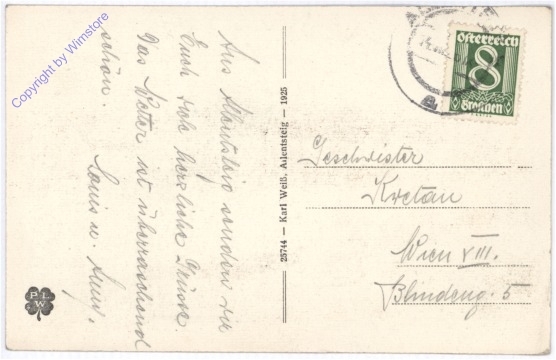 Copyright by Wimstore
Aus Allentsteig senden wir
Euch viele herzliche Grüsse.
Das Wetter ist überraschend
schön.
Louis u.
25744 – Karl Weiß, Aslentsteig – 1925
Österreich
8
Groschen
Geschwister
Kretau
Wien VIII.
Blindeng. 5
P L
W